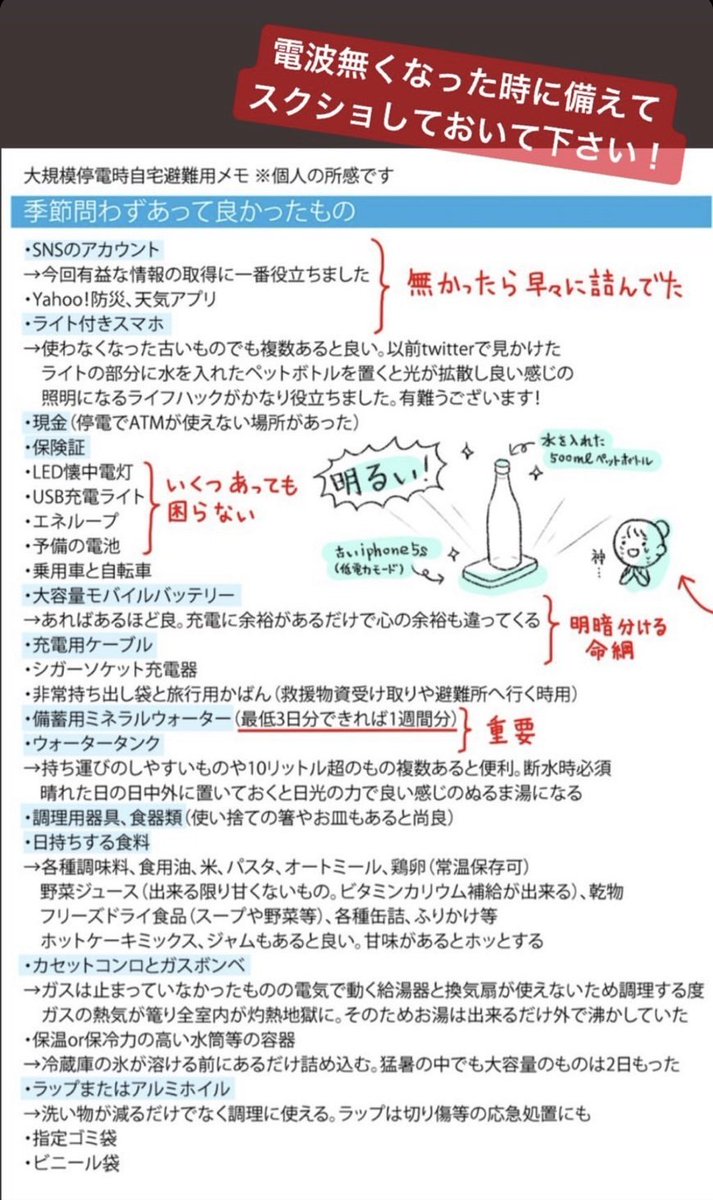 電波無くなった時に備えて
スクショしておいて下さい！
大規模停電時自宅避難用メモ ※個人の所感です
季節問わずあって良かったもの
・SNSのアカウント
→今回有益な情報の取得に一番役立ちました
・Yahoo!防災、天気アプリ
無かったら早々に詰んでた
・ライト付きスマホ
→使わなくなった古いものでも複数あると良い。以前twitterで見かけた
ライトの部分に水を入れたペットボトルを置くと光が拡散し良い感じの
照明になるライフハックがかなり役立ちました。有難うございます!
・現金(停電でATMが使えない場所があった)
・保険証
・LED懐中電灯
・USB充電ライト
・エネループ
・予備の電池
いくつあっても
困らない
明るい!
水を入れた
500mlペットボトル
古いiphone5s
(低電力モード)
神…
・乗用車と自転車
・大容量モバイルバッテリー
→あればあるほど良。充電に余裕があるだけで心の余裕も違ってくる
・充電用ケーブル
明暗分ける
命綱
・シガーソケット充電器
・非常持ち出し袋と旅行用かばん(救援物資受け取りや避難所へ行く時用)
・備蓄用ミネラルウォーター(最低3日分できれば1週間分)
・ウォータータンク
重要
→持ち運びのしやすいものや10リットル超のもの複数あると便利。断水時必須
晴れた日の日中外に置いておくと日光の力で良い感じのぬるま湯になる
・調理用器具、食器類(使い捨ての箸やお皿もあると尚良)
・日持ちする食料
→各種調味料、食用油、米、パスタ、オートミール、鶏卵(常温保存可)
野菜ジュース(出来る限り甘くないもの。ビタミンカリウム補給が出来る)、乾物
フリーズドライ食品(スープや野菜等)、各種缶詰、ふりかけ等
ホットケーキミックス、ジャムもあると良い。甘味があるとホッとする
・カセットコンロとガスボンベ
→ガスは止まっていなかったものの電気で動く給湯器と換気扇が使えないため調理する度
ガスの熱気が篭り全室内が灼熱地獄に。そのためお湯は出来るだけ外で沸かしていた
・保温or保冷力の高い水筒等の容器
→冷蔵庫の氷が溶ける前にあるだけ詰め込む。猛暑の中でも大容量のものは2日もった
・ラップまたはアルミホイル
→洗い物が減るだけでなく調理に使える。ラップは切り傷等の応急処置にも
・指定ゴミ袋
・ビニール袋